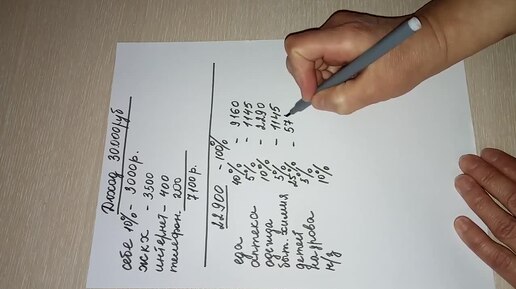 Доход 30000 руб
себе 10% - 3000 р.
жкх - 3500
интернет - 400
телефон 200
7100 р.
22900 - 100%
еда 40% - 9160
аптека 5% - 1145
одежда 10% - 2290
быт. химия 5% - 1145
детей 25% - 57
5%
н/з 10%